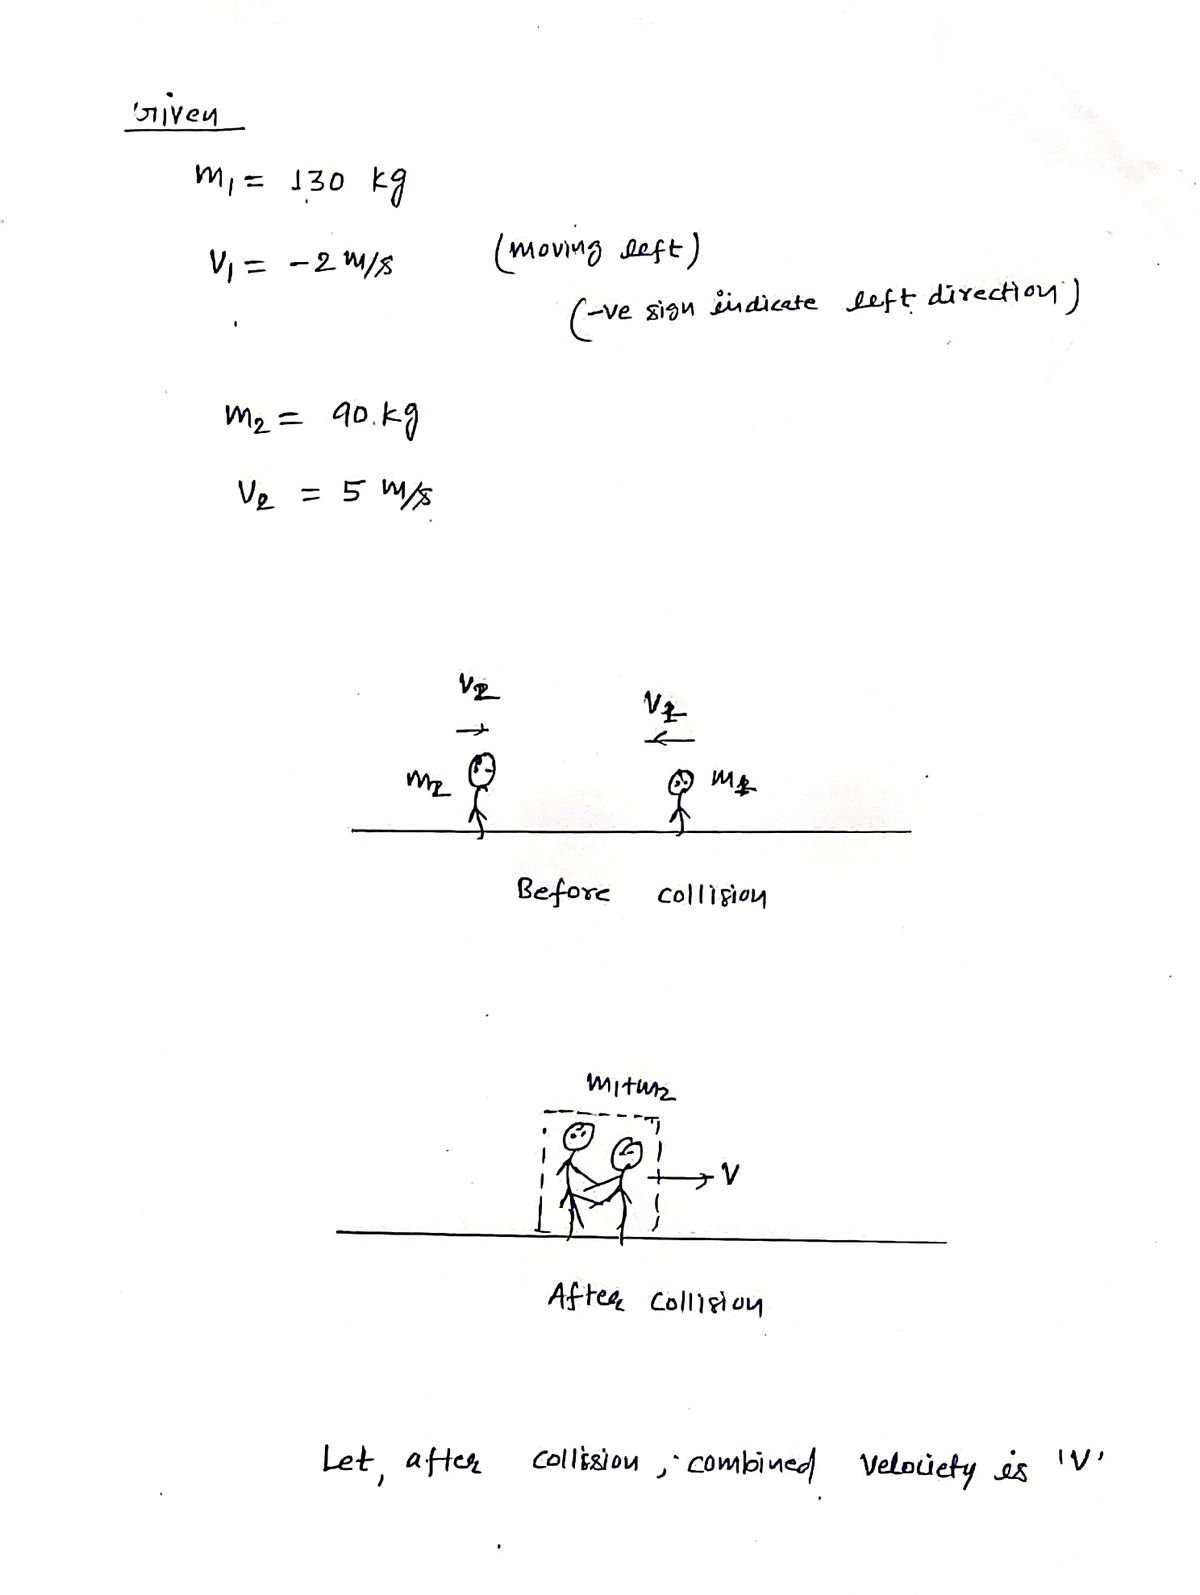 Given
m₁ = 130 kg
V₁ = -2 m/s (moving left)
(-ve sign indicate left direction)
m₂ = 90 kg
V₂ = 5 m/s
V₂ V₁
m₂ m₁
Before collision
m₁+m₂
V
After collision
Let, after collision, combined velociety is 'V'